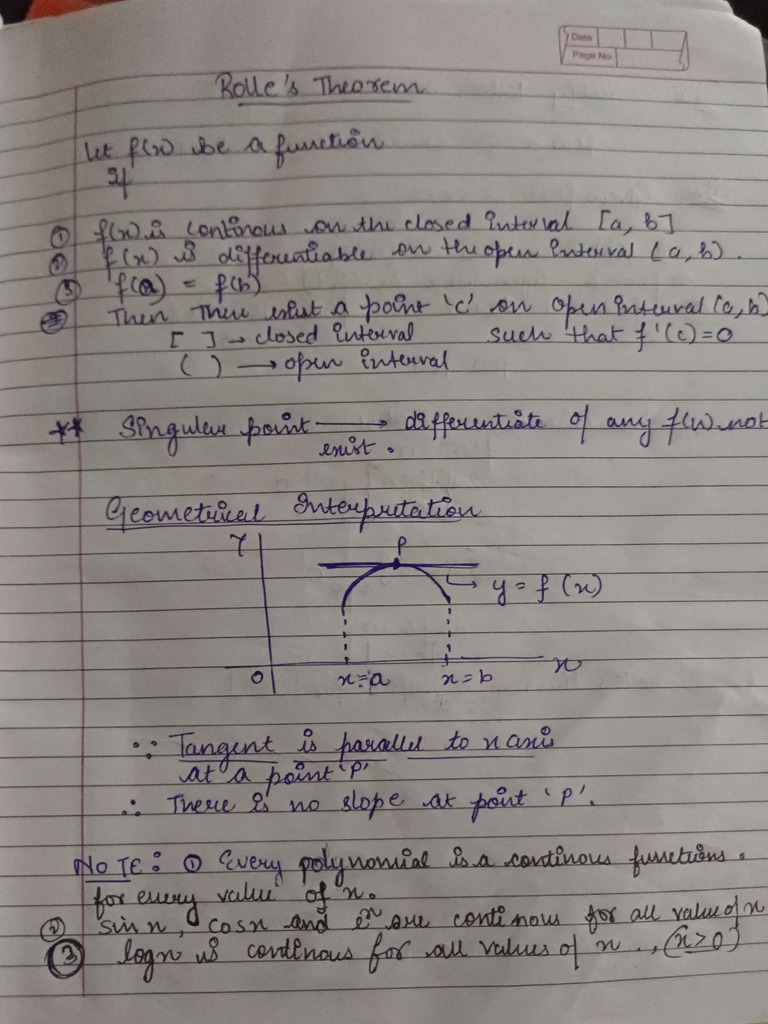 Date
Page No.
Rolle's Theorem
Let f(x) be a function
If
① f(x) is continous on the closed interval [a, b]
② f(x) is differentiable on the open interval (a, b).
③ f(a) = f(b)
Then There exist a point 'c' on open interval (a, b)
[ ] → closed interval such that f'(c)=0
( ) → open interval
** Singular point → differentiate of any f(x) not
exist.
Geometrical Interpretation
Y
P
y = f (x)
O x=a x=b x
∵ Tangent is parallel to x axis
at a point 'P'
∴ There is no slope at point 'P'.
NOTE: ① Every polynomial is a continous functions.
for every value of x.
② sin x, cos x and eˣ are continous for all value of x
③ log x is continous for all values of x ., (x>0)